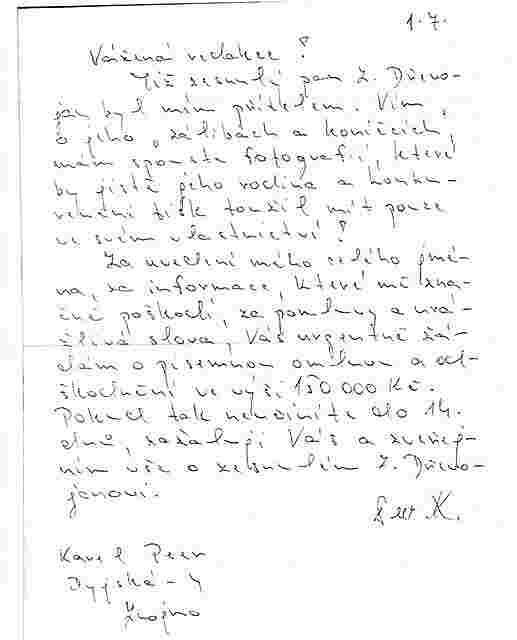 1.7.
Vážená redakce!
Již zesnulý pan Z. Dřevo-
jan byl mým přítelem. Vím
o jeho "zálibách a koníčcích",
mám spoustu fotografií, které
by jistě jeho rodina a konku-
renční tisk toužil mít pouze
ve svém vlastnictví!
Za uvedení mého celého jmé-
na, za informace, které mě zna-
čně poškodí, za pomluvy a urá-
žlivá slova, Vás urgentně žá-
dám o písemnou omluvu a od-
škodnění ve výši 150 000 Kč.
Pokud tak neučiníte do 14.
dnů, zažaluji Vás a zveřej-
ním vše o zesnulém Z. Dřevo-
janovi.
K.
Karel Peer
Dyjská - 4
Znojmo